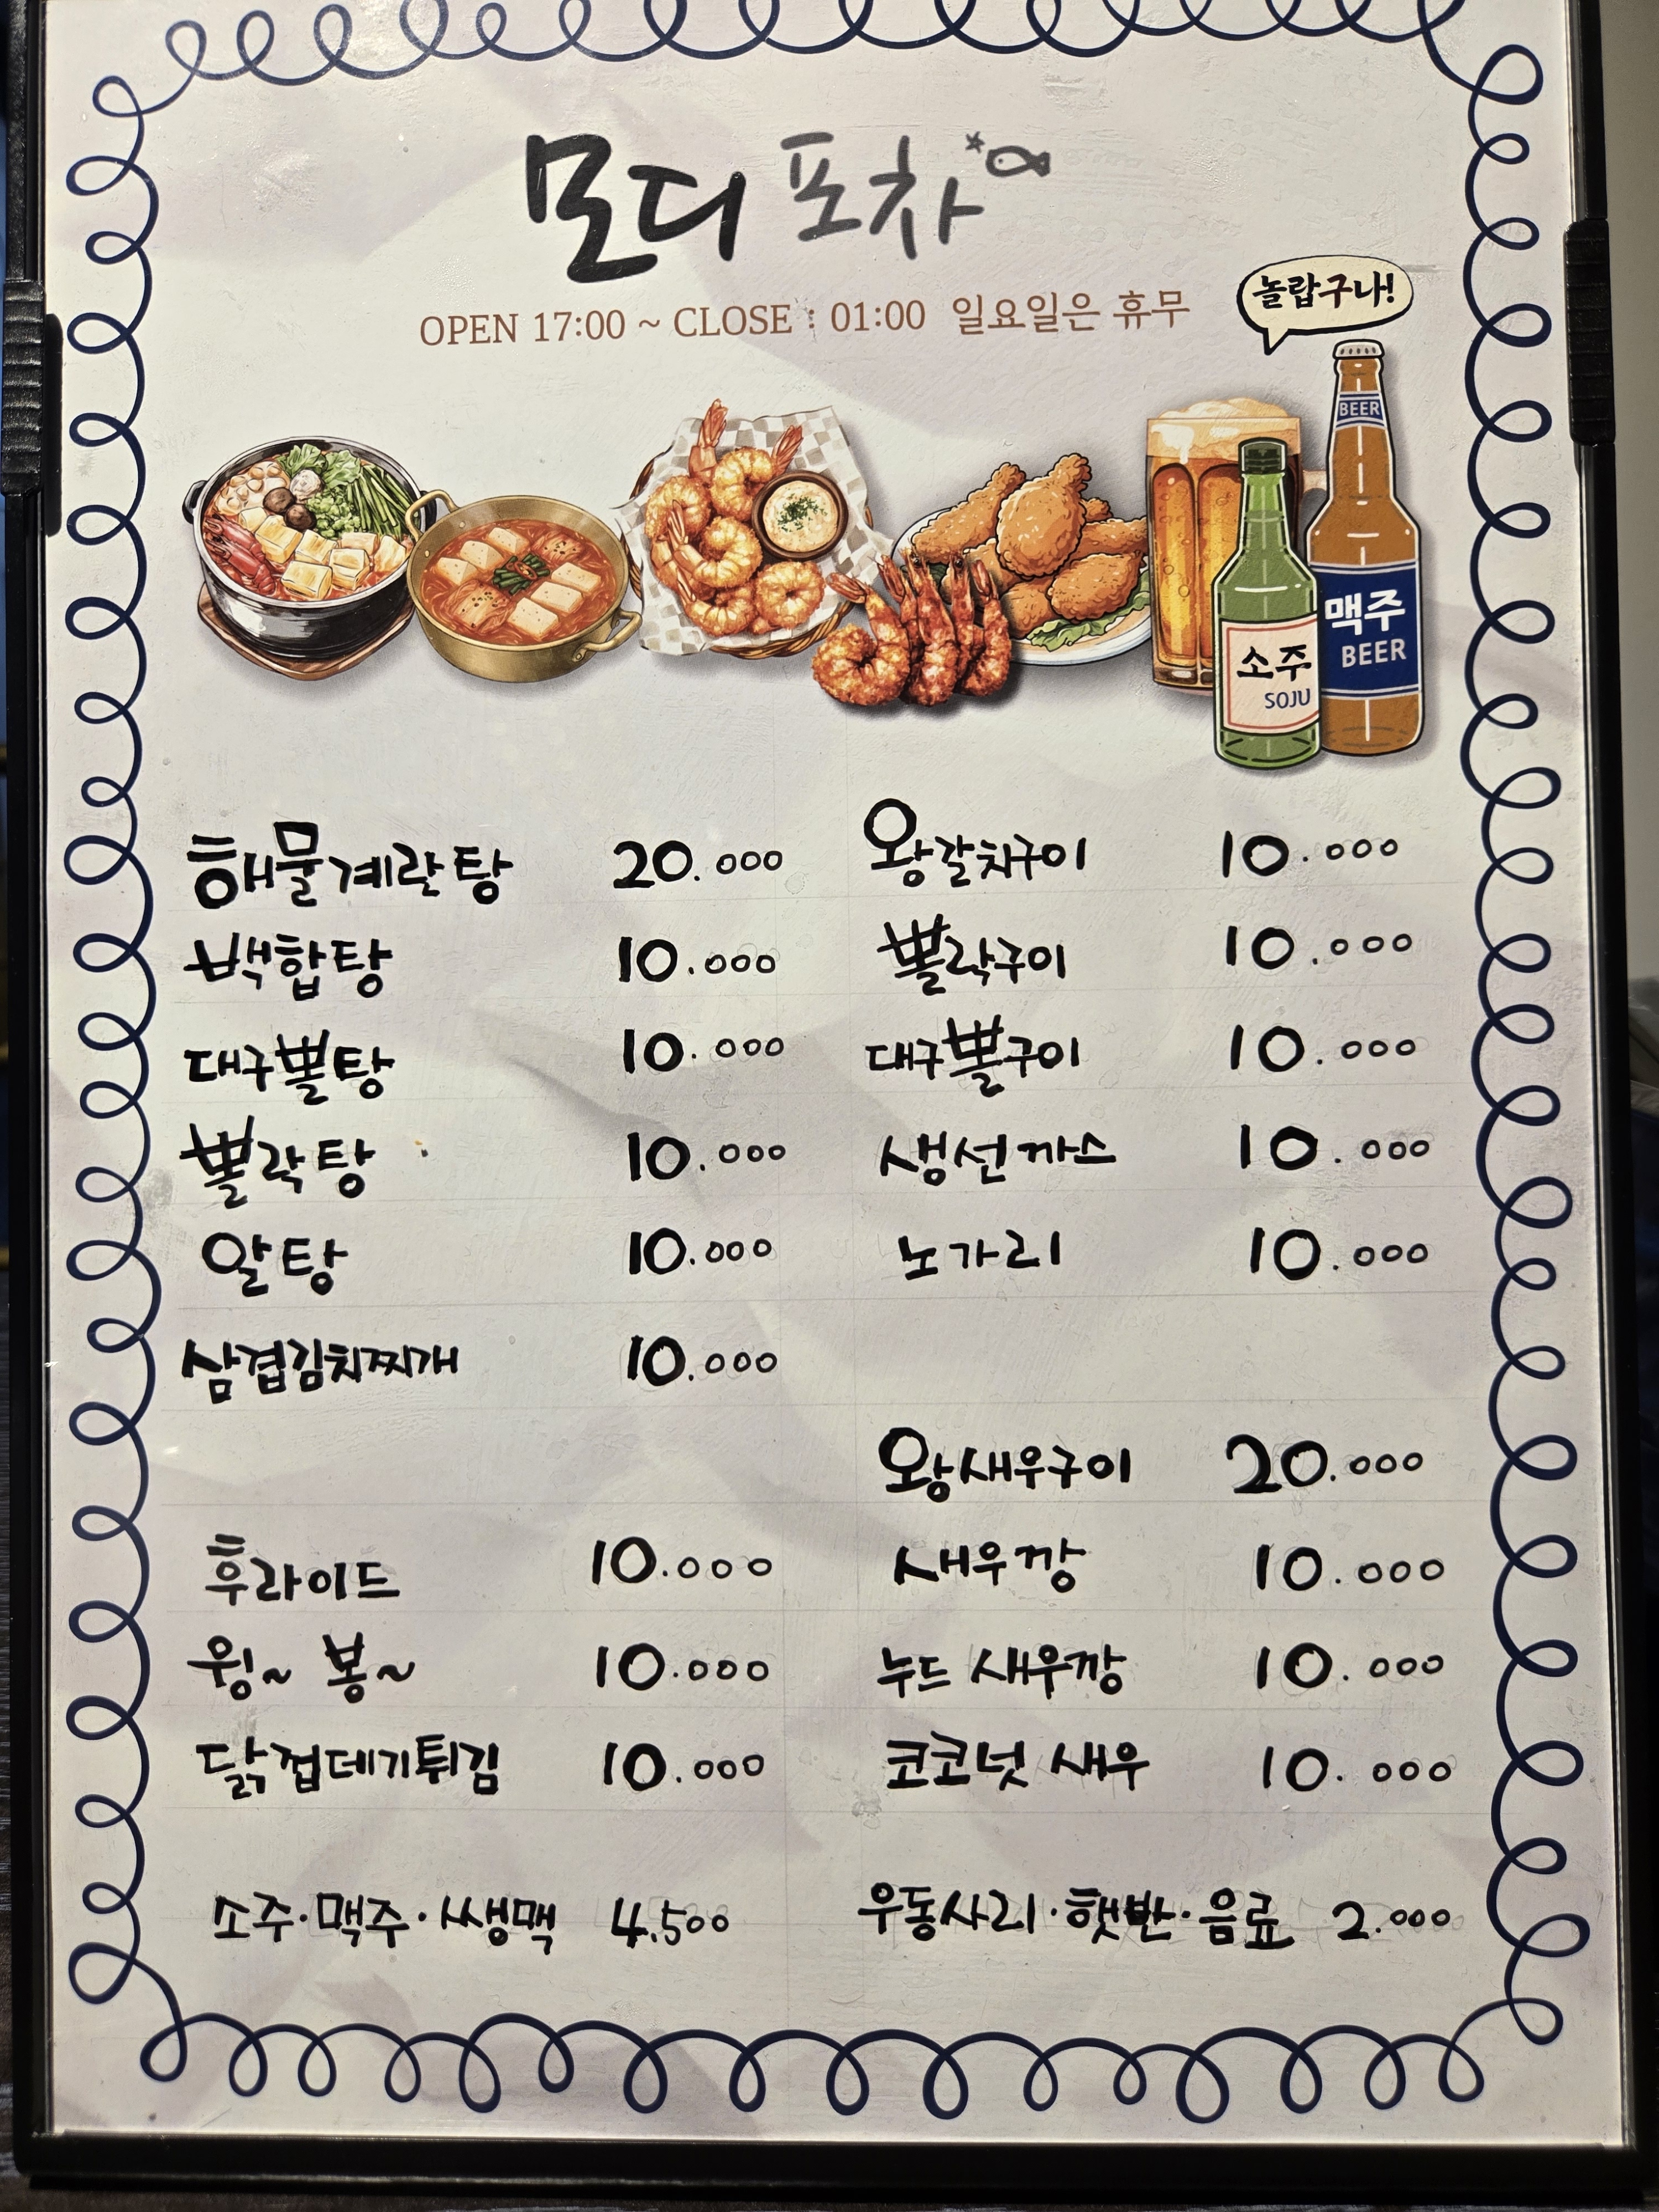 모디 포차
OPEN 17:00 ~ CLOSE : 01:00 일요일은 휴무
놀랍구나!
BEER
맥주
BEER
소주
SOJU
해물계란탕 20.000
백합탕 10.000
대구뽈탕 10.000
뽈락탕 10.000
알탕 10.000
삼겹김치찌개 10.000
후라이드 10.000
윙~ 봉~ 10.000
닭껍데기튀김 10.000
소주·맥주·쌩맥 4.500
왕갈치구이 10.000
뽈락구이 10.000
대구뽈구이 10.000
생선까스 10.000
노가리 10.000
왕새우구이 20.000
새우깡 10.000
누드 새우깡 10.000
코코넛 새우 10.000
우동사리·햇반·음료 2.000